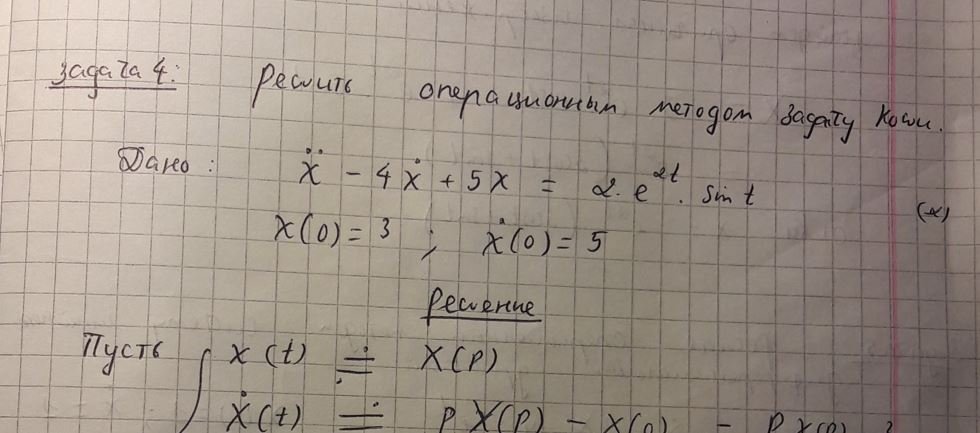 Задача 4: Решить операционным методом задачу Коши.
Дано: ẍ - 4ẋ + 5x = 2·e^2t · sin t
(*)
x(0) = 3 ; ẋ(0) = 5
Решение
Пусть { x(t) ≓ X(p)
ẋ(t) ≓ pX(p) - x(0) = pX(p)